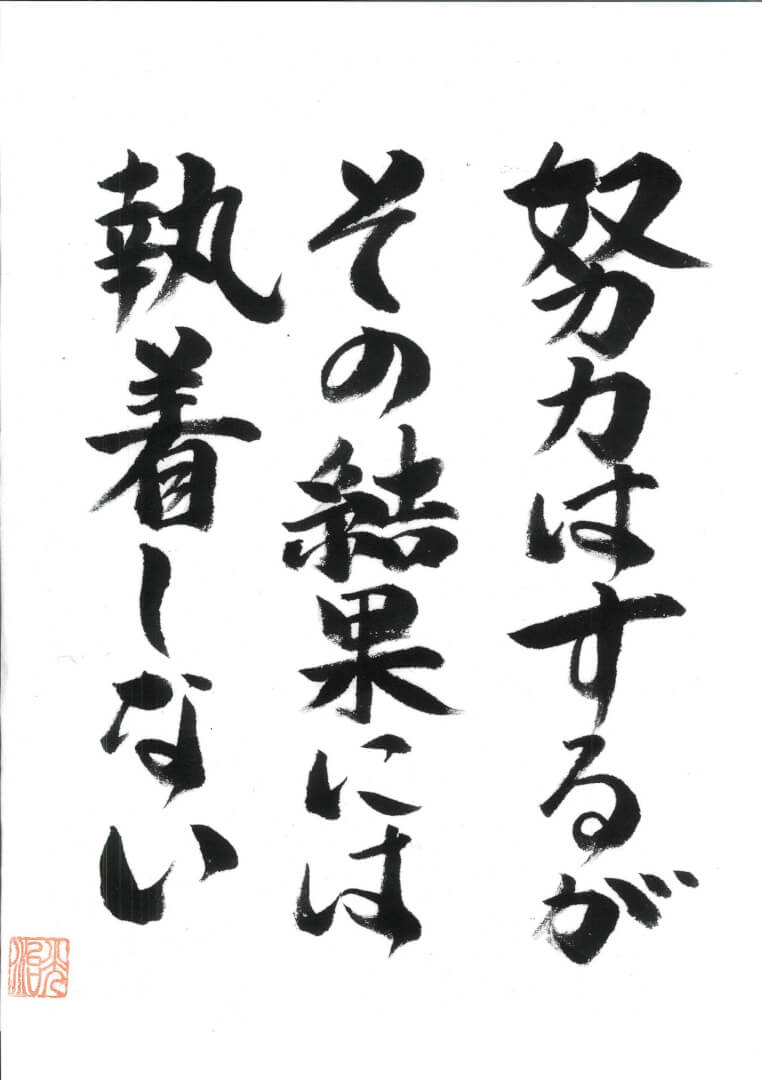 努力はするが
その結果には
執着しない